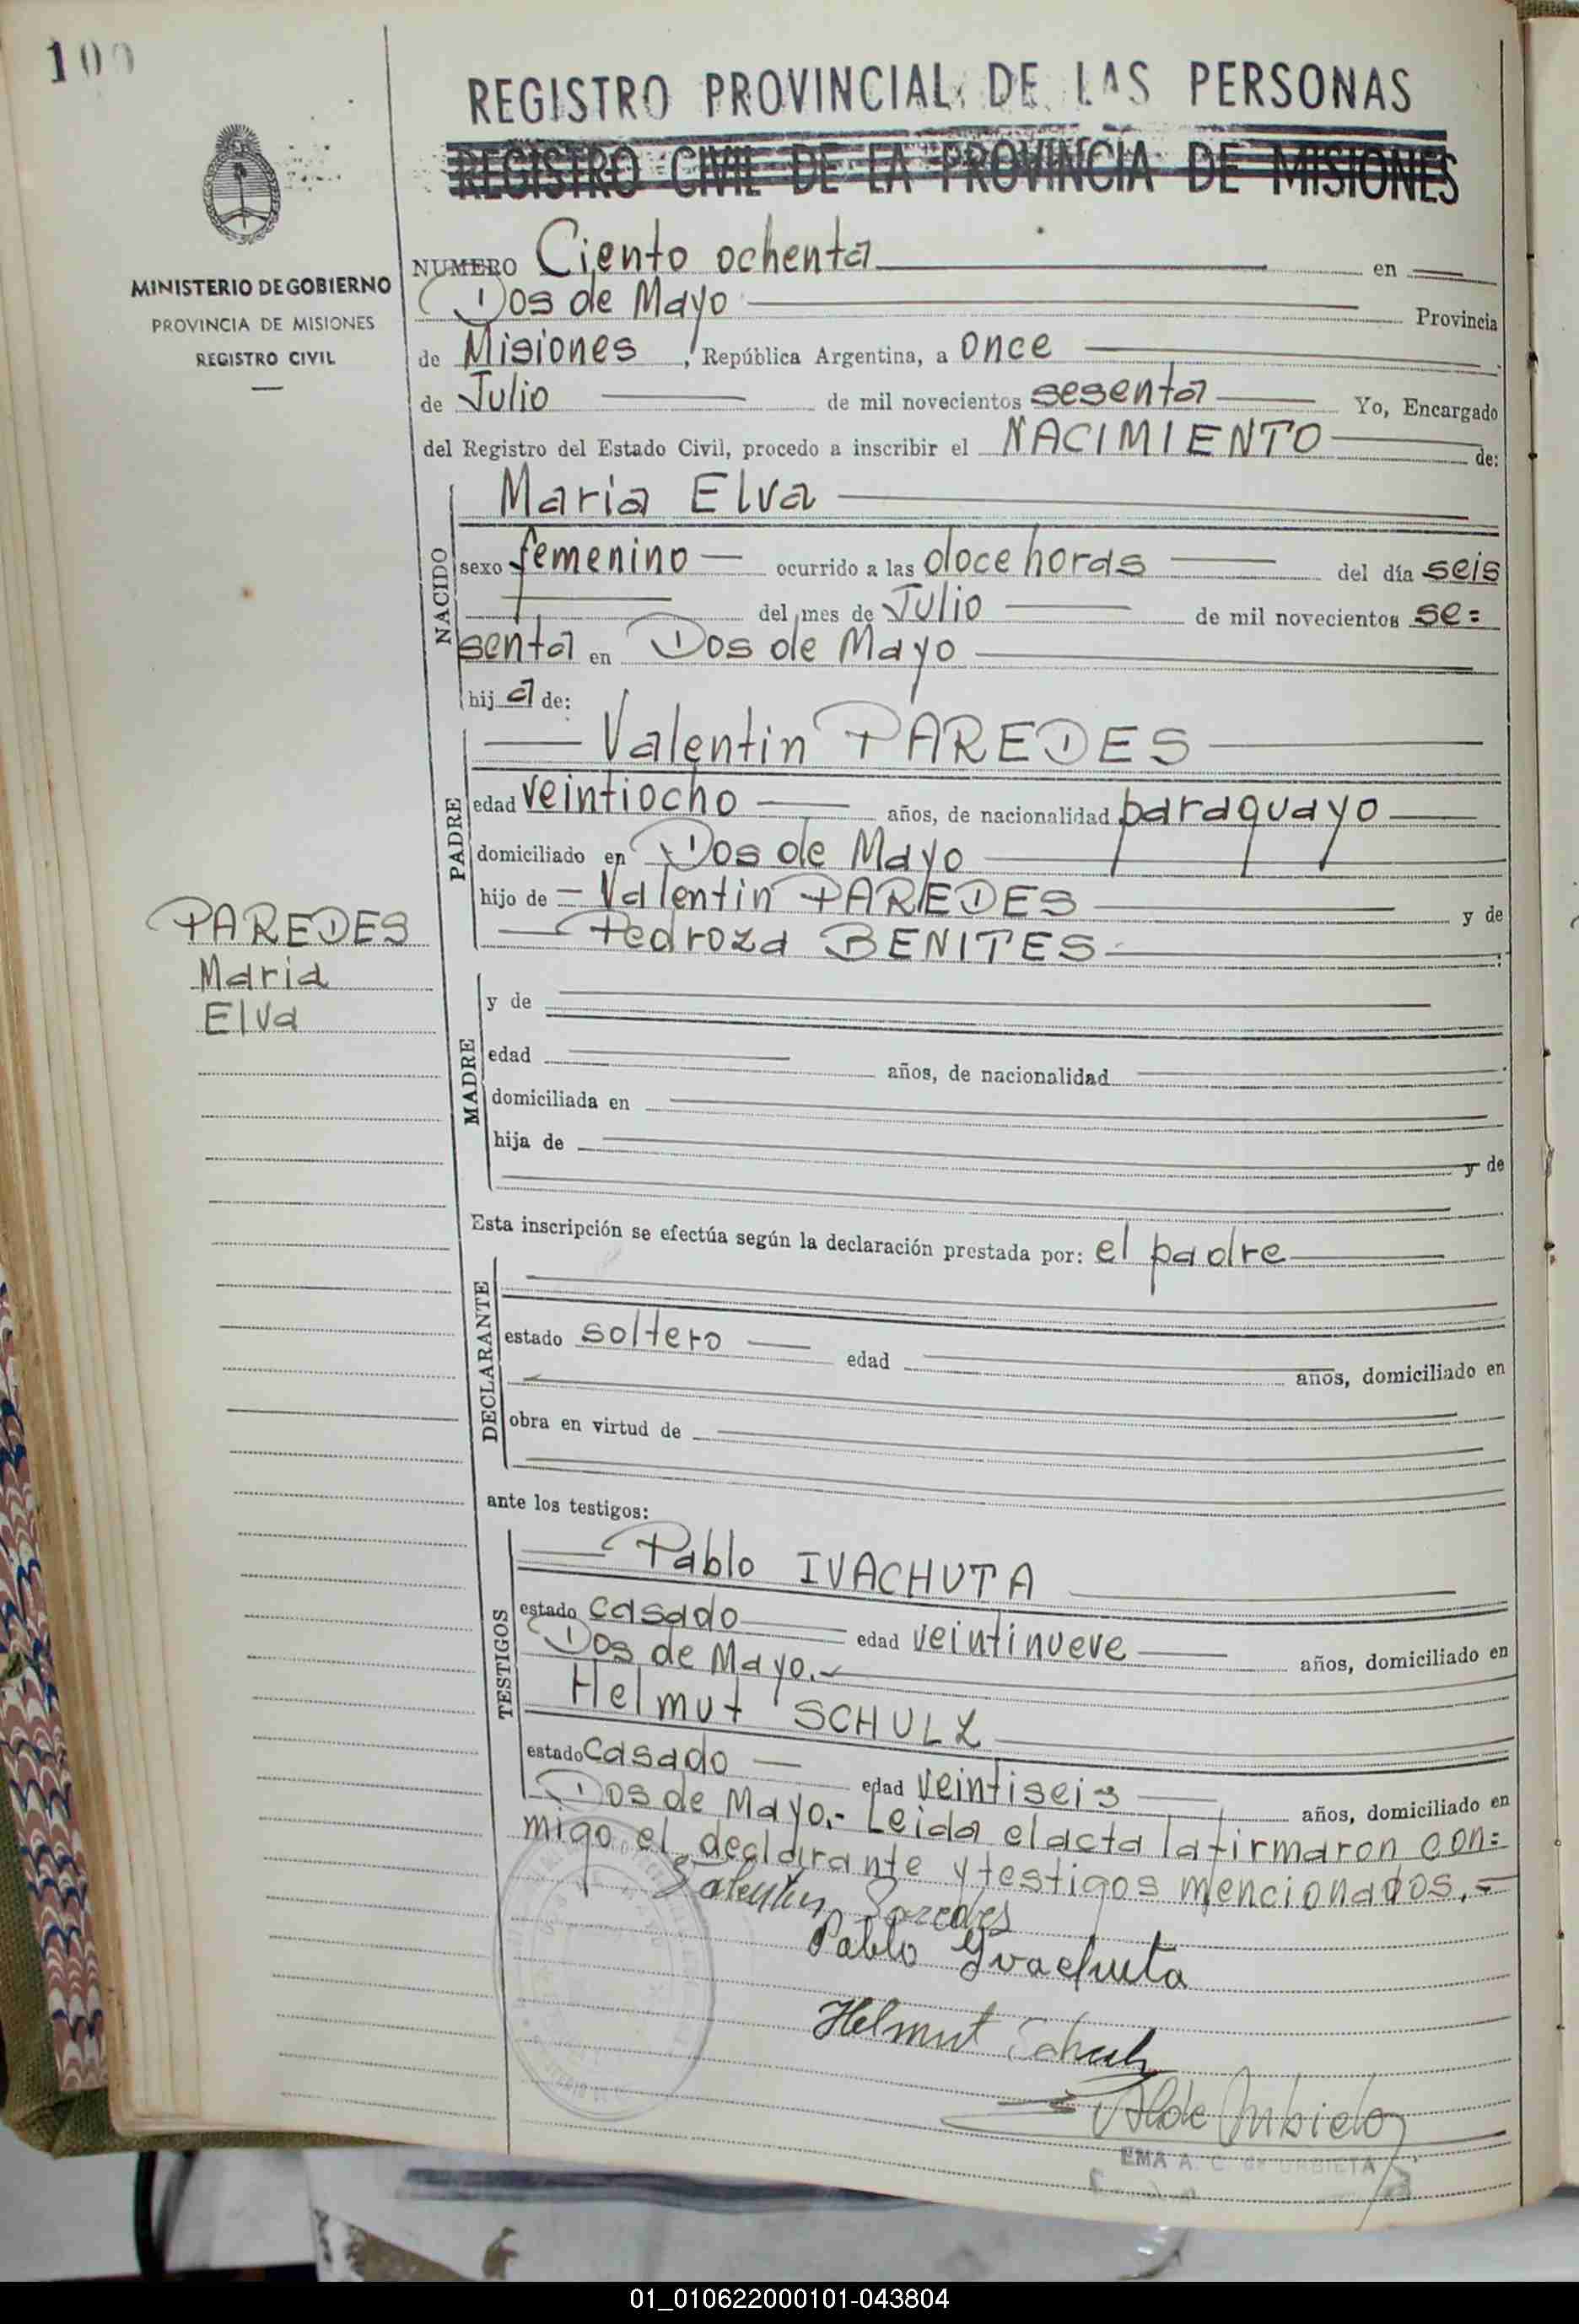 100
REGISTRO PROVINCIAL DE LAS PERSONAS
REGISTRO CIVIL DE LA PROVINCIA DE MISIONES
MINISTERIO DE GOBIERNO
PROVINCIA DE MISIONES
REGISTRO CIVIL
NUMERO Ciento ochenta en
Dos de Mayo Provincia
de Misiones, República Argentina, a once
de Julio de mil novecientos sesenta Yo, Encargado
del Registro del Estado Civil, procedo a inscribir el NACIMIENTO de:
NACIDO
Maria Elva
sexo femenino ocurrido a las doce horas del día seis
del mes de Julio de mil novecientos se=
senta en Dos de Mayo
hij a de:
PADRE
Valentin PAREDES
edad veintiocho años, de nacionalidad paraguayo
domiciliado en Dos de Mayo
hijo de Valentin PAREDES y de
Pedroza BENITES
PAREDES
Maria
Elva
MADRE
y de
edad años, de nacionalidad
domiciliada en
hija de y de
Esta inscripción se efectúa según la declaración prestada por: el padre
DECLARANTE
estado soltero edad años, domiciliado en
obra en virtud de
ante los testigos:
TESTIGOS
Pablo IVACHUTA
estado casado edad veintinueve años, domiciliado en
Dos de Mayo.-
Helmut SCHULZ
estado casado edad veintiseis años, domiciliado en
Dos de Mayo.- Leida el acta la firmaron con=
migo el declarante y testigos mencionados.-
Valentin Paredes
Pablo Ivachuta
Helmut Schulz
EMA A. C. de URBIETA
01_010622000101-043804